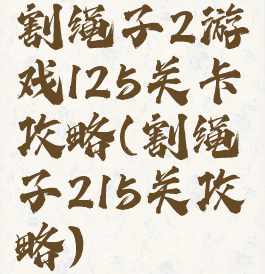 割绳子2游
戏125关卡
攻略(割绳
子215关攻
略)